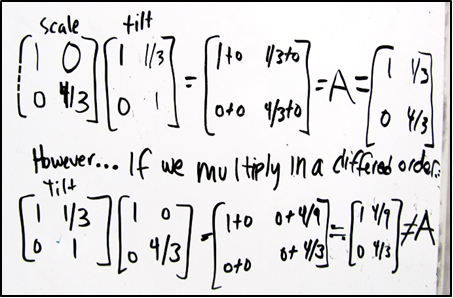 scale tilt
[1 0; 0 4/3] [1 1/3; 0 1] = [1+0 1/3+0; 0+0 4/3+0] = A = [1 1/3; 0 4/3]
However... If we multiply in a different order:
tilt
[1 1/3; 0 1] [1 0; 0 4/3] = [1+0 0+4/9; 0+0 0+4/3] = [1 4/9; 0 4/3] ≠ A